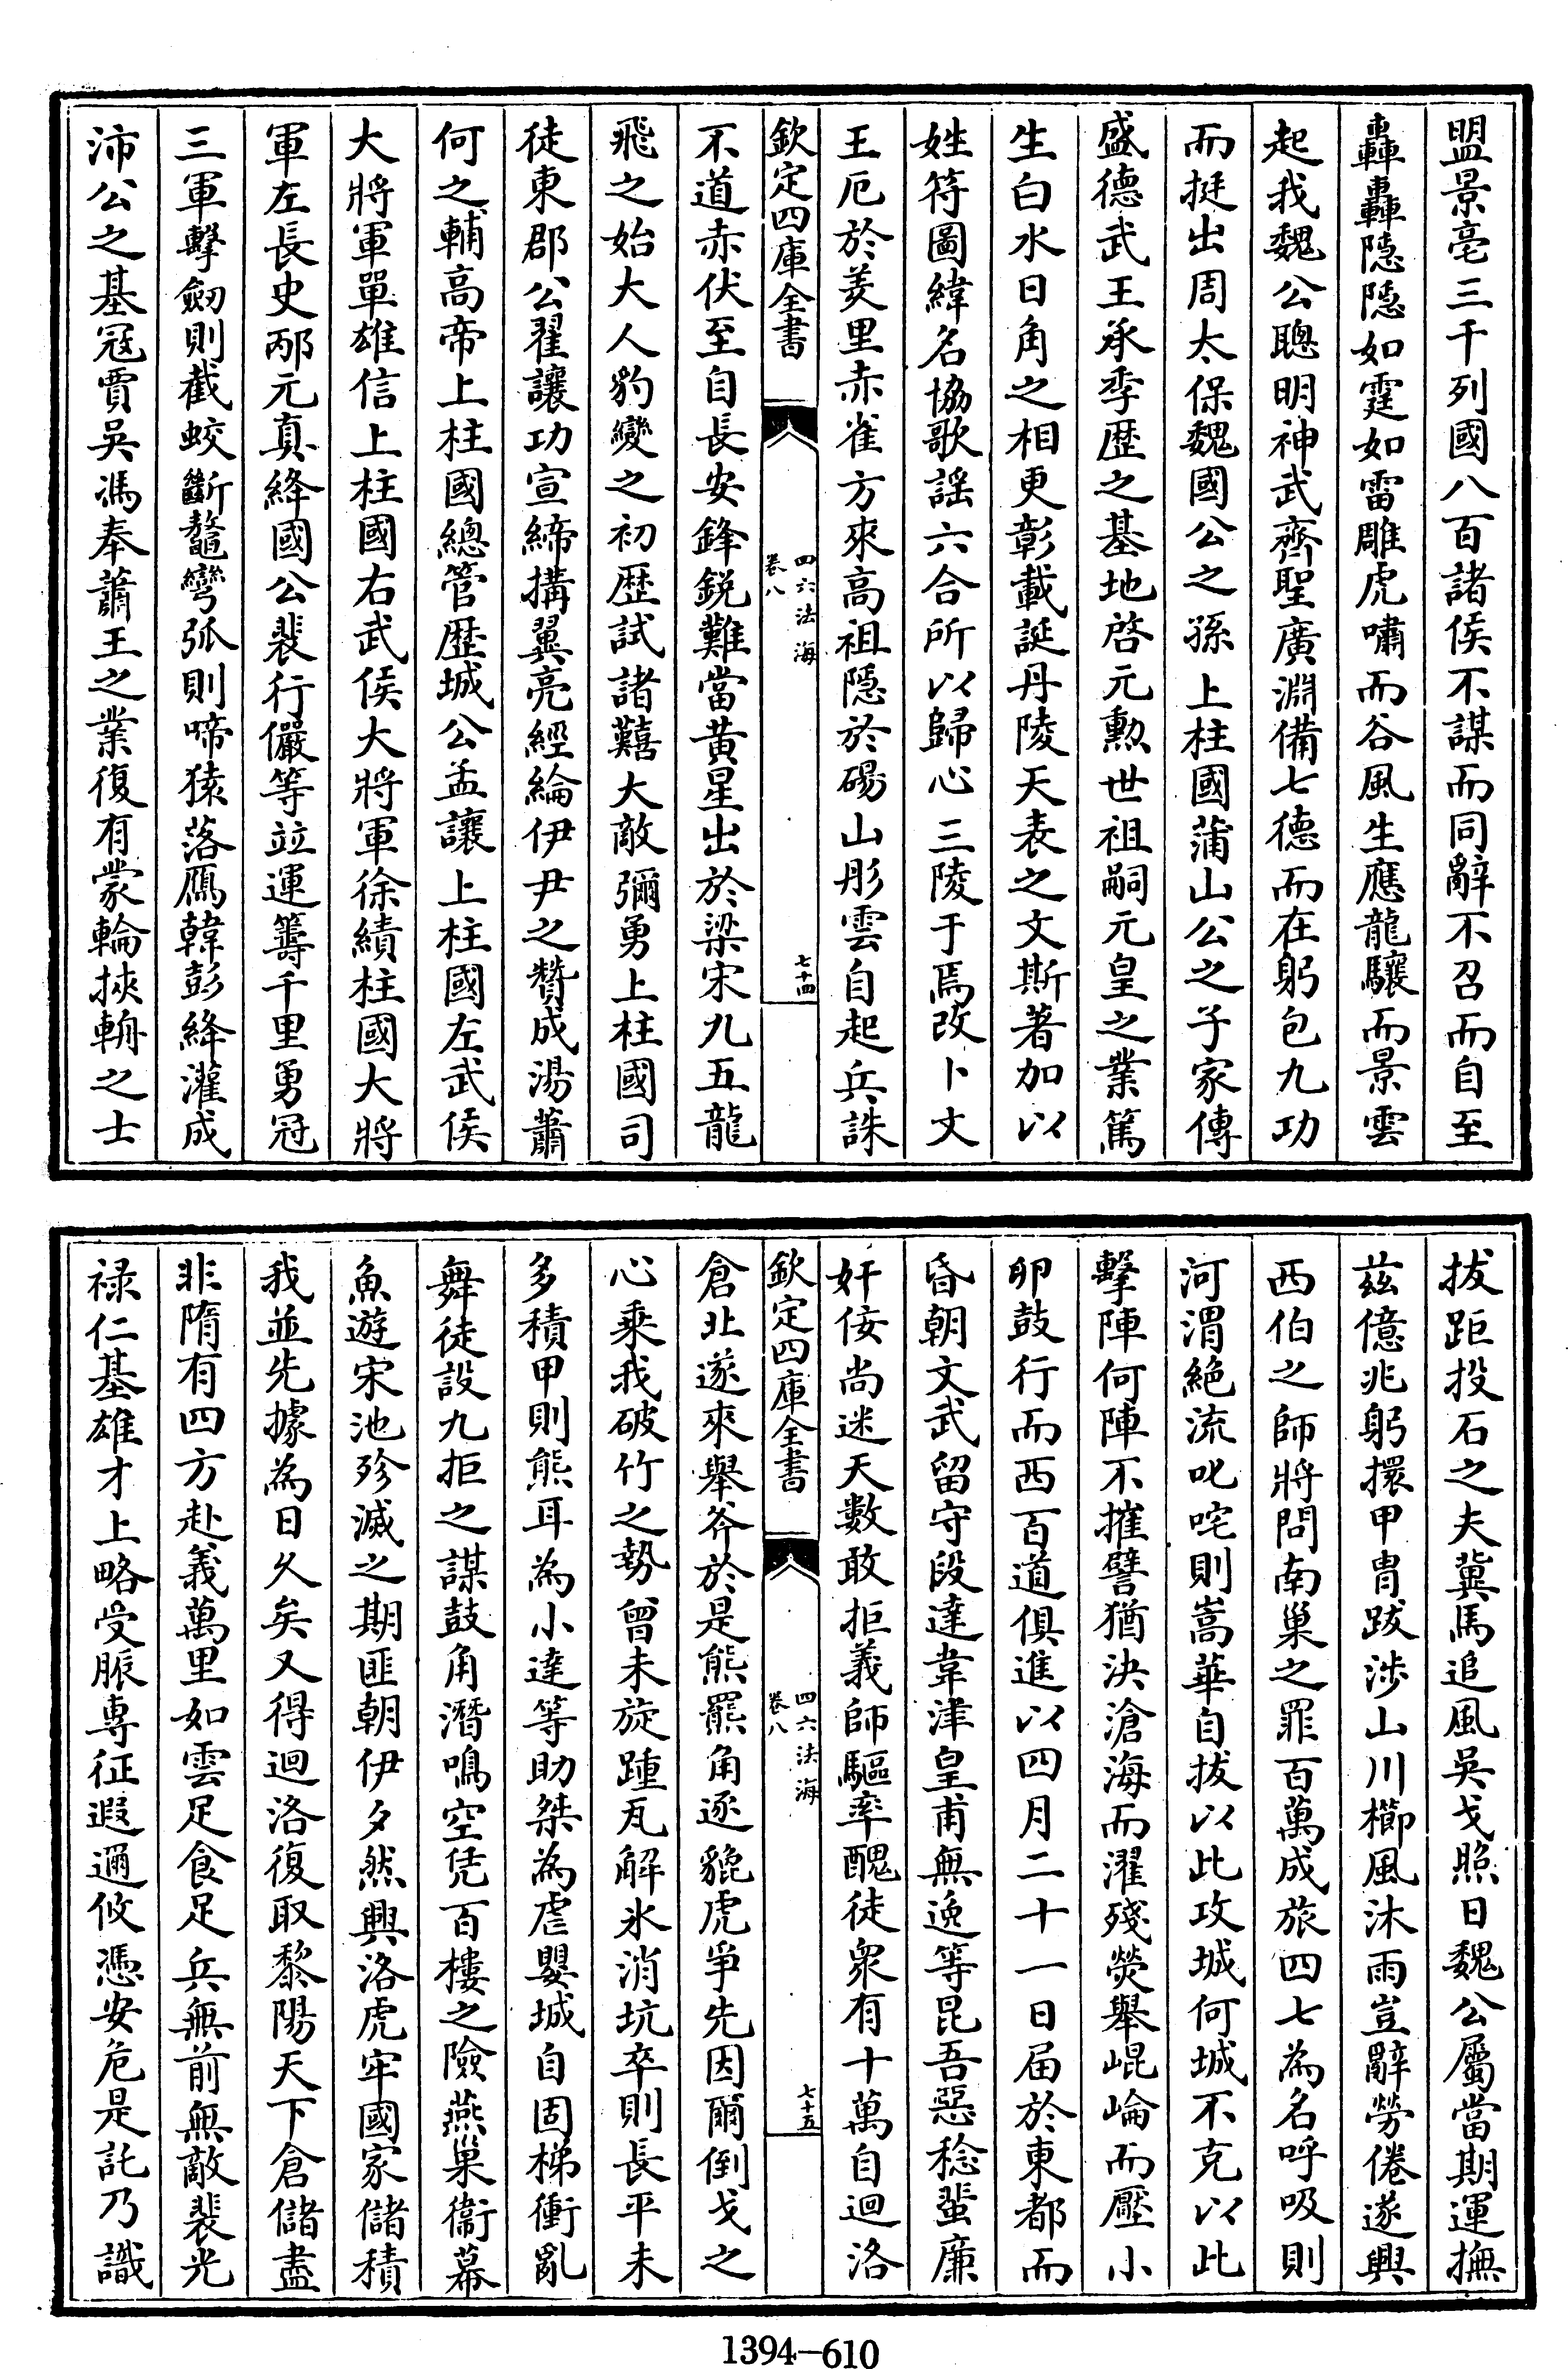 盟景亳三千列國八百諸侯不謀而同辭不召而自至
轟轟隱隱如霆如雷雕虎嘯而谷風生應龍驤而景雲
起我魏公聰明神武齊聖廣淵備七德而在躬包九功
而挺出周太保魏國公之孫上柱國蒲山公之子家傳
盛德武王承季歷之基地啓元勲世祖嗣元皇之業篤
生白水日角之相更彰載誕丹陵天表之文斯著加以
姓符圖緯名協歌謡六合所以歸心三陵于焉改卜文
王厄於羑里赤雀方來高祖隱於碭山彤雲自起兵誅
欽定四庫全書
四六法海
卷八
七十四
不道赤伏至自長安鋒鋭難當黄星出於梁宋九五龍
飛之始大人豹變之初歴試諸囏大敵彌勇上柱國司
徒東郡公翟讓功宣締搆翼亮經綸伊尹之贊成湯蕭
何之輔高帝上柱國總管歴城公孟讓上柱國左武侯
大將軍單雄信上柱國右武侯大將軍徐績柱國大將
軍左長史邴元真絳國公裴行儼等竝運籌千里勇冠
三軍擊劒則截蛟斷鼇彎弧則啼猿落鴈韓彭絳灌成
沛公之基冦賈吳馮奉蕭王之業復有蒙輪挾輈之士
拔距投石之夫冀馬追風吳戈照日魏公屬當期運撫
茲億兆躬擐甲胄跋涉山川櫛風沐雨豈辭勞倦遂興
西伯之師將問南巢之罪百萬成旅四七為名呼吸則
河渭絶流叱咤則嵩華自拔以此攻城何城不克以此
擊陣何陣不摧譬猶決滄海而濯殘熒舉崐崘而壓小
卵鼓行而西百道俱進以四月二十一日届於東都而
昏朝文武留守段達韋津皇甫無逸等昆吾惡稔蜚廉
奸佞尚迷天數敢拒義師驅率醜徒衆有十萬自迴洛
欽定四庫全書
四六法海
卷八
七十五
倉北遂來舉斧於是熊羆角逐貔虎爭先因爾倒戈之
心乗我破竹之勢曾未旋踵瓦解氷消坑卒則長平未
多積甲則熊耳為小達等助桀為虐嬰城自固梯衝亂
舞徒設九拒之謀鼓角潛鳴空凭百樓之險燕巢衞幕
魚遊宋池殄滅之期匪朝伊夕然興洛虎牢國家儲積
我並先據為日久矣又得迴洛復取黎陽天下倉儲盡
非隋有四方赴義萬里如雲足食足兵無前無敵裴光
禄仁基雄才上略受脤専征遐邇攸憑安危是託乃識
1394-610